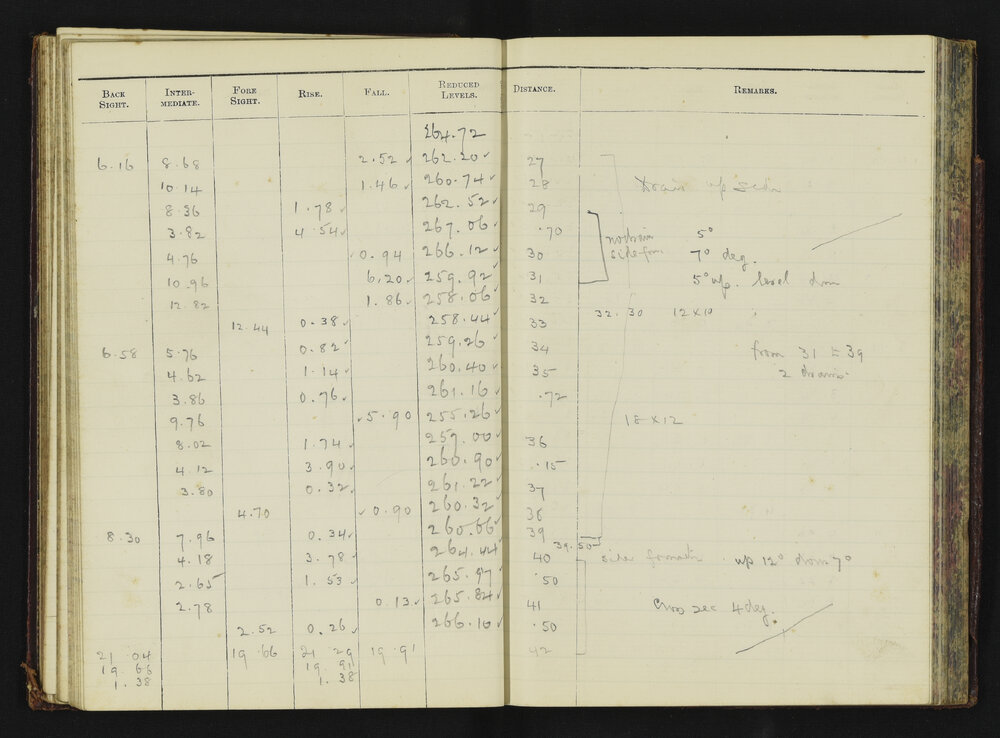 BACK SIGHT. INTERMEDIATE. FORE SIGHT. RISE. FALL. REDUCED LEVELS. DISTANCE. REMARKS.
264.72
6.16 8.68 2.52 262.20 27
10.14 1.46 260.74 28
8.36 1.78 262.52 29
3.82 4.54 267.06 .70 5°
4.76 0.94 266.12 30 7° deg.
10.96 6.20 259.92 31 5° up. level
12.82 1.86 258.06 32
12.44 0.38 258.44 33 32.30 12x10
6.58 5.76 0.82 259.26 34 from 31 to 39
4.62 1.14 260.40 35 2 drains
3.86 0.76 261.16 .72
9.76 5.90 255.26 18x12
8.02 1.74 257.00 36
4.12 3.90 260.90 .15
3.80 0.32 261.22 37
4.70 0.90 260.32 38
8.30 7.96 0.34 260.66 39
39.50
4.18 3.78 264.44 40 side formation up 12° down 7°
2.65 1.53 265.97 .50
2.78 0.13 265.84 41 Cross sec 4 deg.
2.52 0.26 266.10 .50
21.04 19.66 21.29 19.91 42
19.66 19.91
1.38 1.38